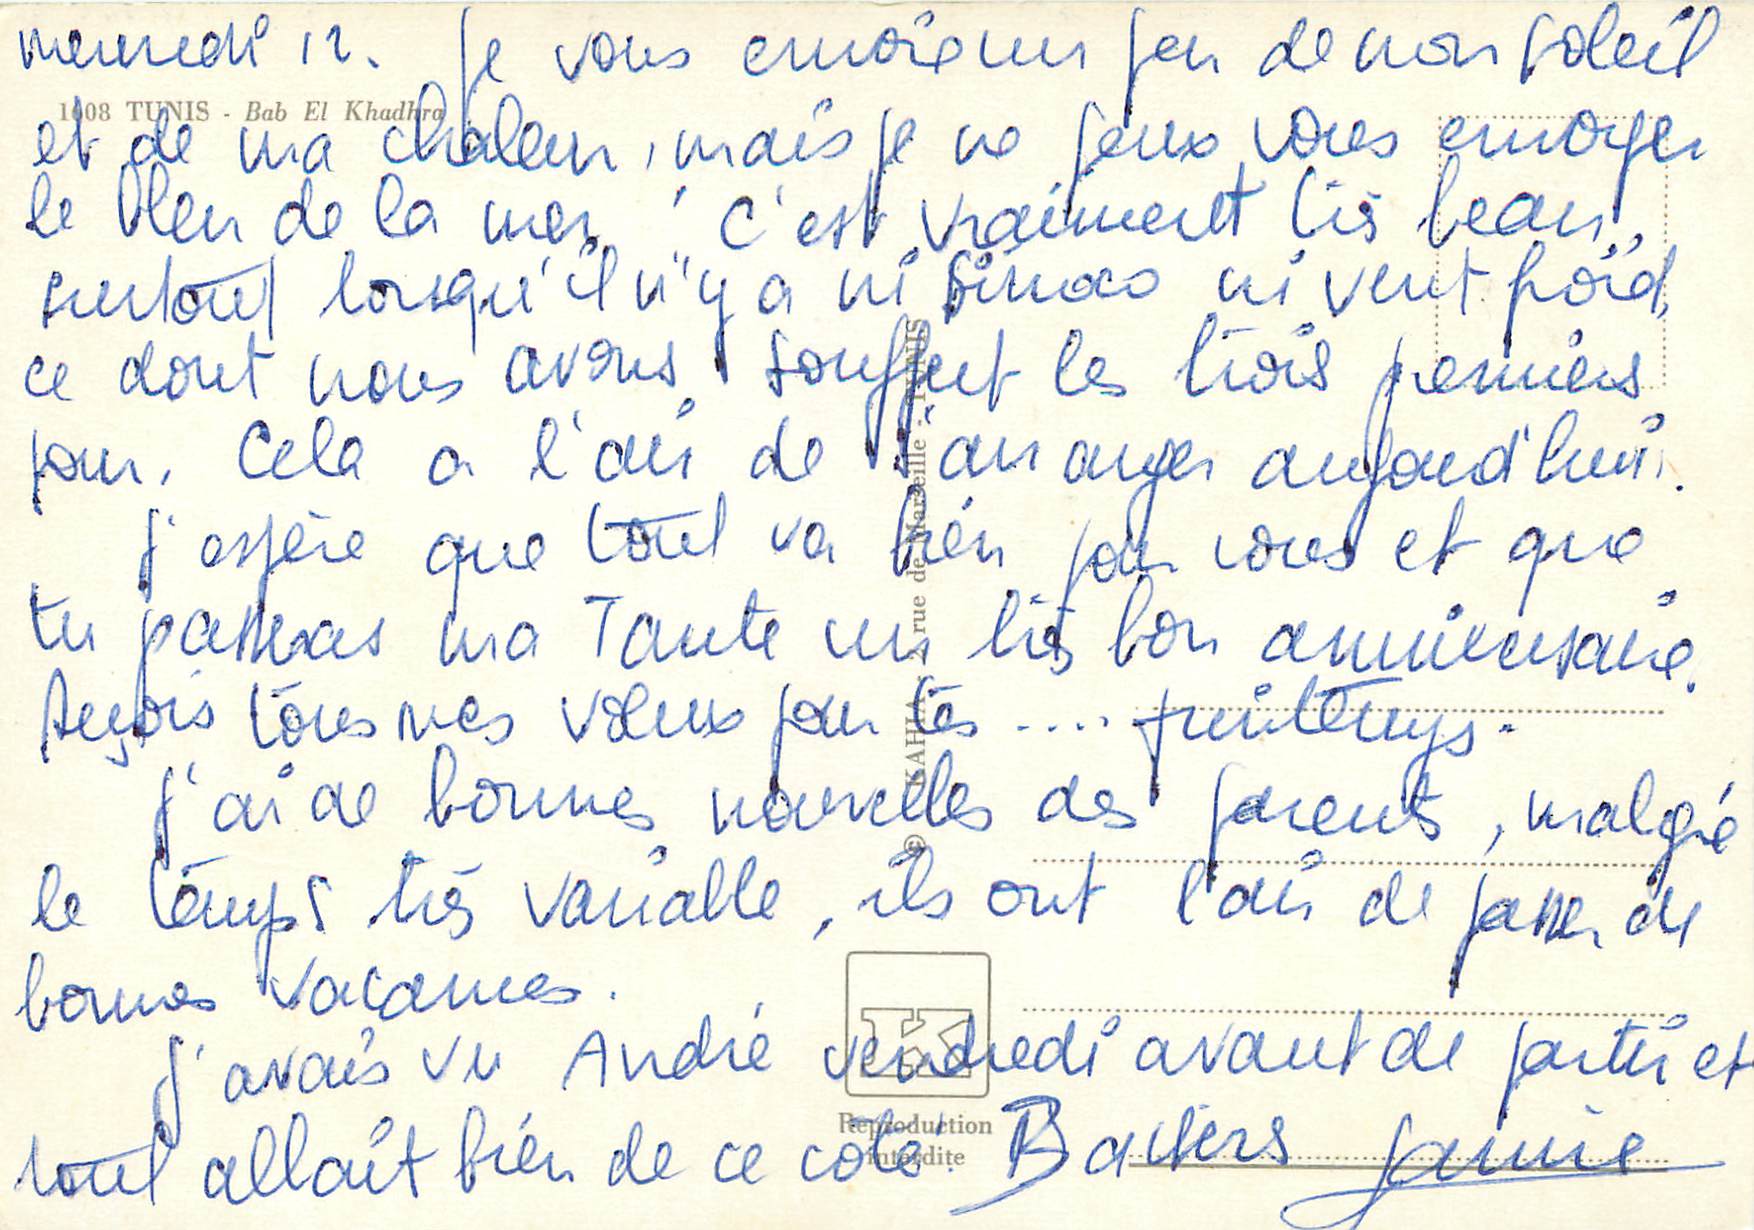 mercredi 12. Je vous envoie un peu de mon soleil
1008 TUNIS - Bab El Khadhra
et de ma chaleur, mais je ne peux vous envoyer
le bleu de la mer ! C'est vraiment très beau,
surtout lorsqu'il n'y a ni ni vent froid,
ce dont nous avons souffert les trois premiers
jours. Cela a l'air de s'arranger aujourd'hui.
J'espère que tout va bien pour vous et que
tu passeras ma Tante un très bon anniversaire.
Reçois tous mes vœux pour tes .... printemps.
J'ai de bonnes nouvelles des parents, malgré
le temps très variable, ils ont l'air de passer de
bonnes vacances.
J'avais vu André vendredi avant de partir et
tout allait bien de ce côté. Baisers
© KAHIA - 2 rue de Marseille - TUNIS
K
Reproduction
interdite